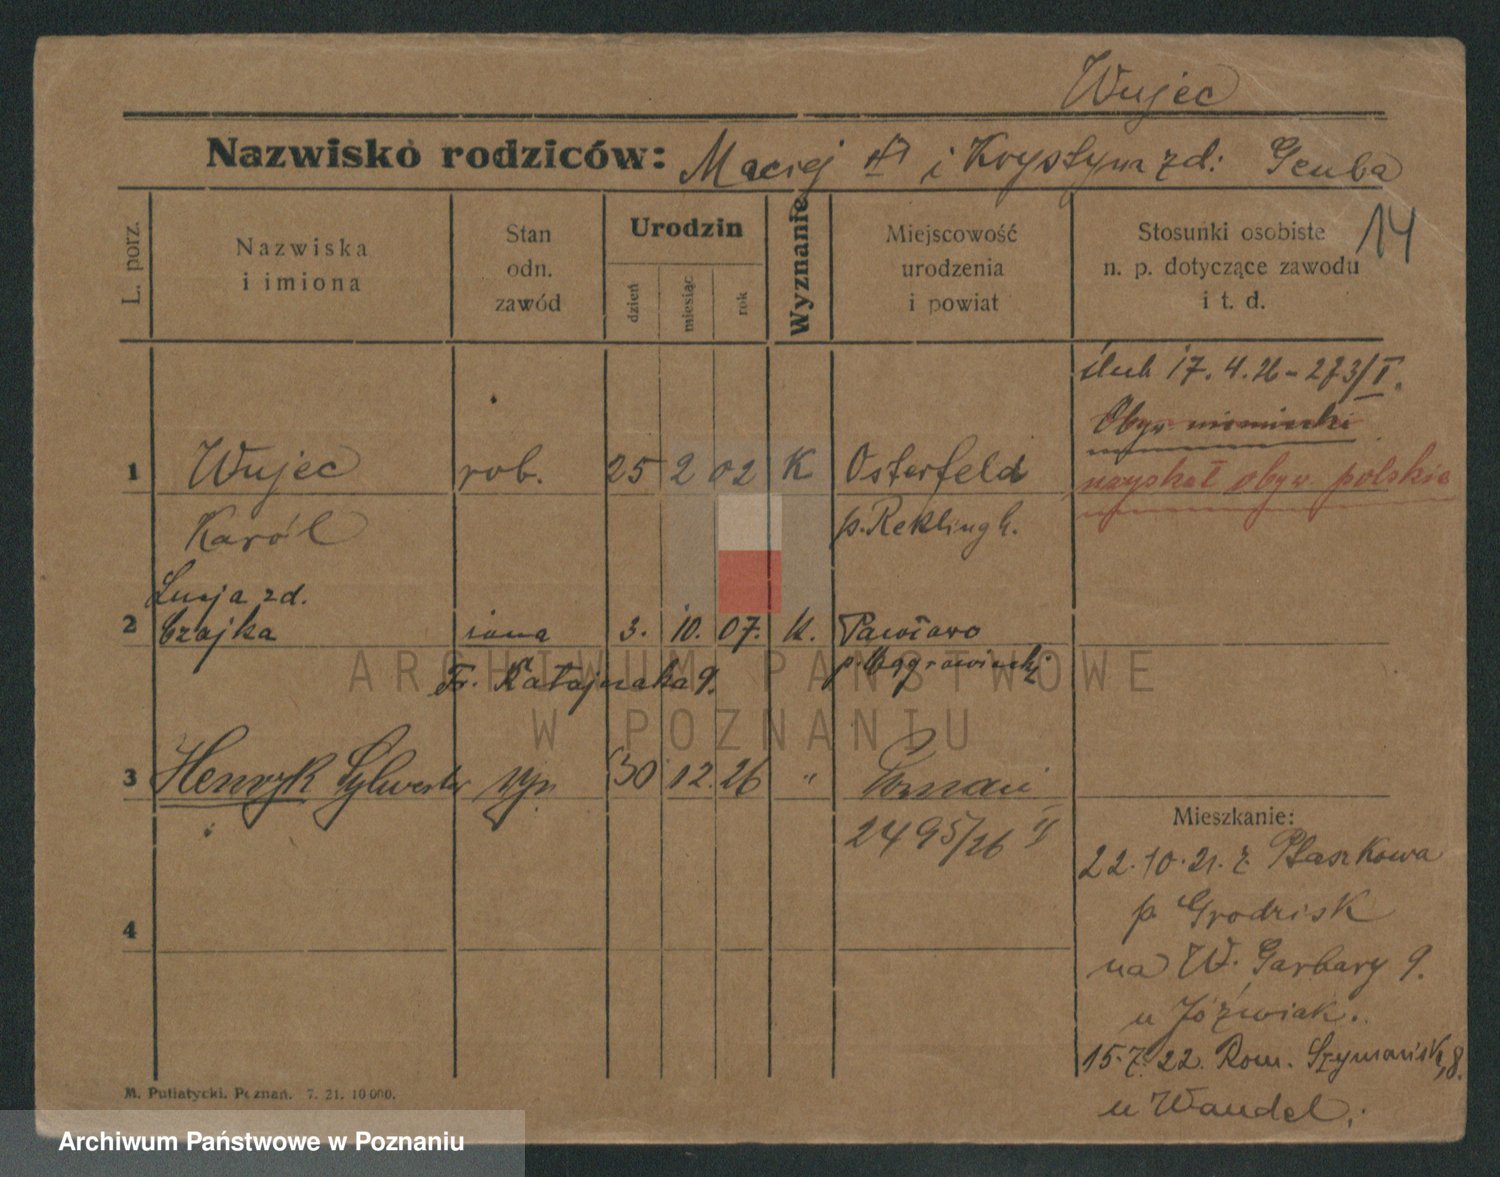 Wujec
Nazwisko rodziców: Maciej i Krystyna zd: Genba
14
L. porz.
Nazwiska
i imiona
Stan
odn.
zawód
Urodzin
dzień
miesiąc
rok
Wyznanie
Miejscowość
urodzenia
i powiat
Stosunki osobiste
n. p. dotyczące zawodu
i t. d.
ślub 17. 4. 26 - 273/I.
Obyw. niemiecki
uzyskał obyw. polskie
1 Wujec rob. 25 2 02 K Osterfeld
Karól p. Reklingh.
Lucja zd.
2 Czajka żona 3. 10. 07. K. Pawłowo
p. Wągrowiecki
Fr. Ratajczaka 9.
3 Henryk Sylwester syn 30 12. 26 " Poznań
2495/26 II
4
Mieszkanie:
22. 10. 21. z Ptaszkowa
p. Grodzisk
na W. Garbary 9.
u Jóźwiak.
15. 7. 22. Rom. Szymańsk. 8.
u Wandel.
M. Putiatycki. Poznań. 7. 21. 10 000.
ARCHIWUM PAŃSTWOWE
W POZNANIU
Archiwum Państwowe w Poznaniu